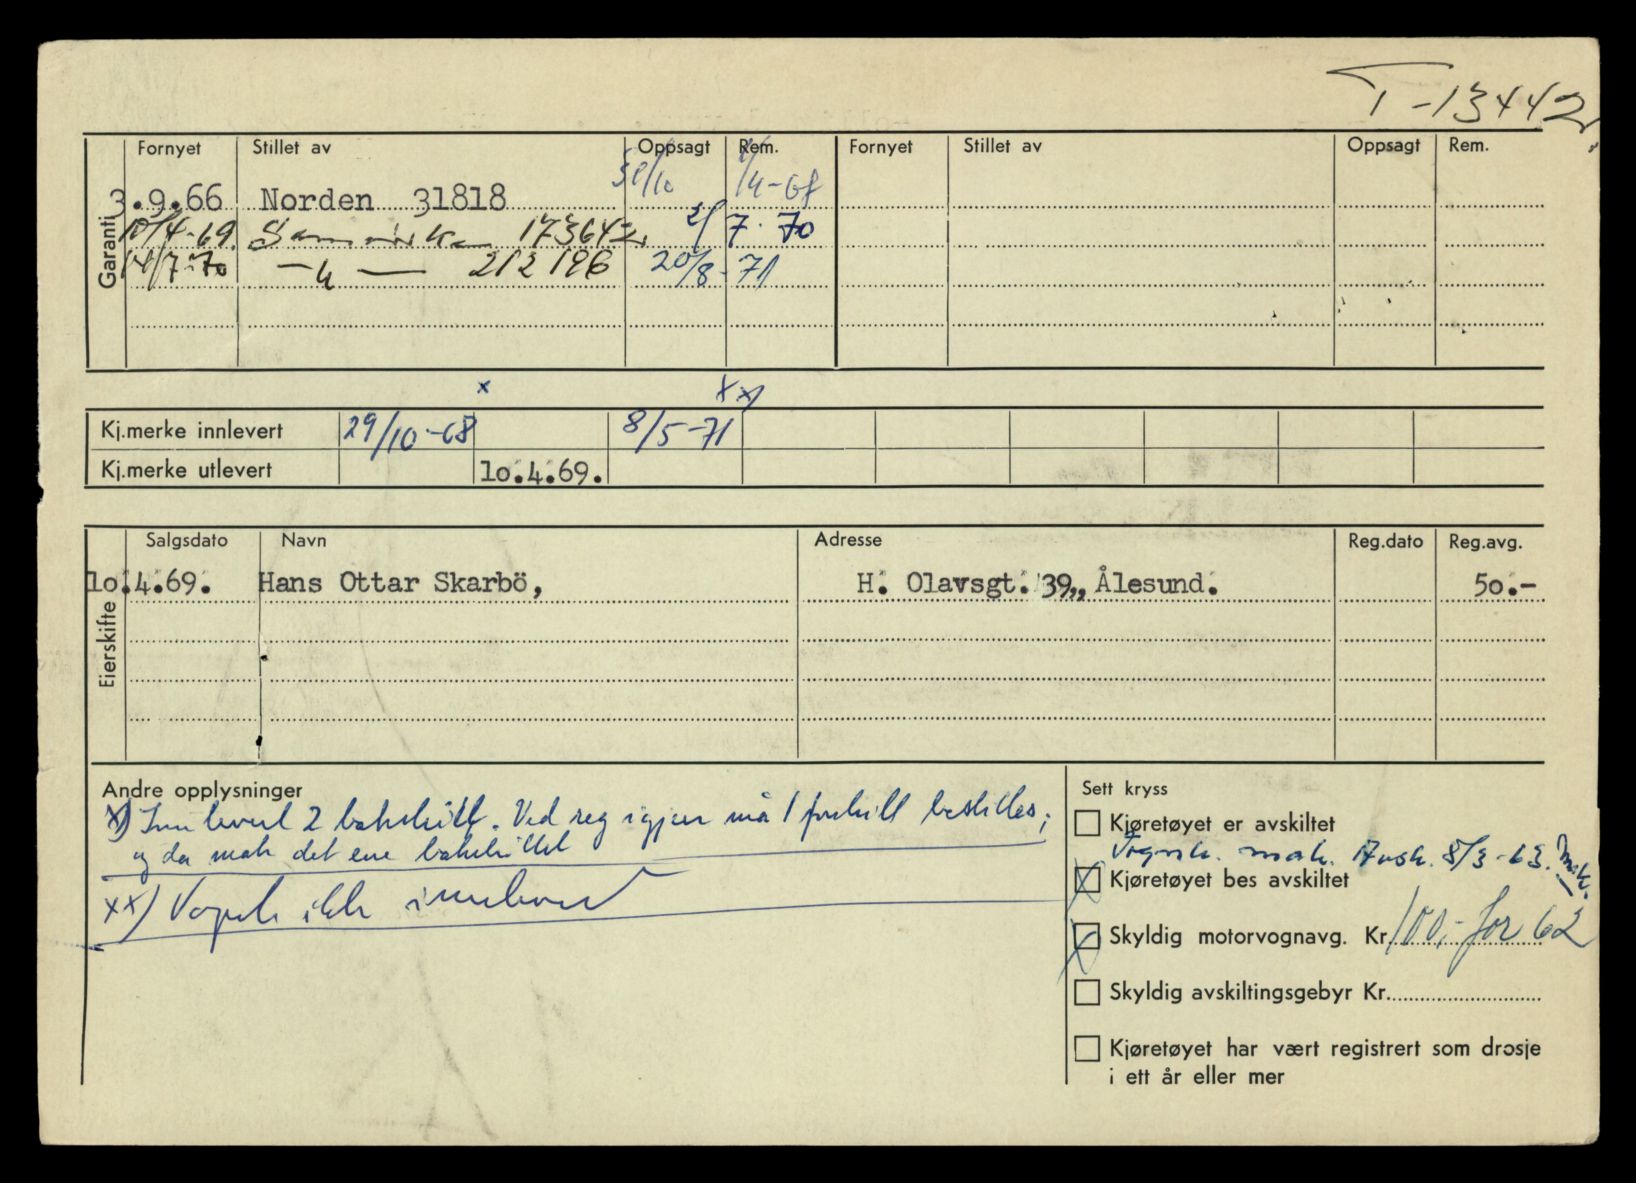 T-13442
Fornyet Stillet av Oppsagt Rem. Fornyet Stillet av Oppsagt Rem.
Garanti
3.9.66 Norden 31818
10/4-69 173642 2/7-70
14/7-70 —"— 212186 20/8-71
x xx
Kj.merke innlevert 29/10-68 8/5-71
Kj.merke utlevert 10.4.69.
Salgsdato Navn Adresse Reg.dato Reg.avg.
Eierskifte
10.4.69. Hans Ottar Skarbö, H. Olavsgt. 39,, Ålesund. 50.-
Andre opplysninger
x) Innlevert 2 bakskilt. Ved reg igjen må 1 forskilt bestilles;
og da mak det ene bakskiltet
xx) Vognk ikke innlevert
Sett kryss
Kjøretøyet er avskiltet
Vognk. mak. Avsk. 8/3-63. mak.
Kjøretøyet bes avskiltet
Skyldig motorvognavg. Kr 100,- for 62
Skyldig avskiltingsgebyr Kr.
Kjøretøyet har vært registrert som drosje
i ett år eller mer